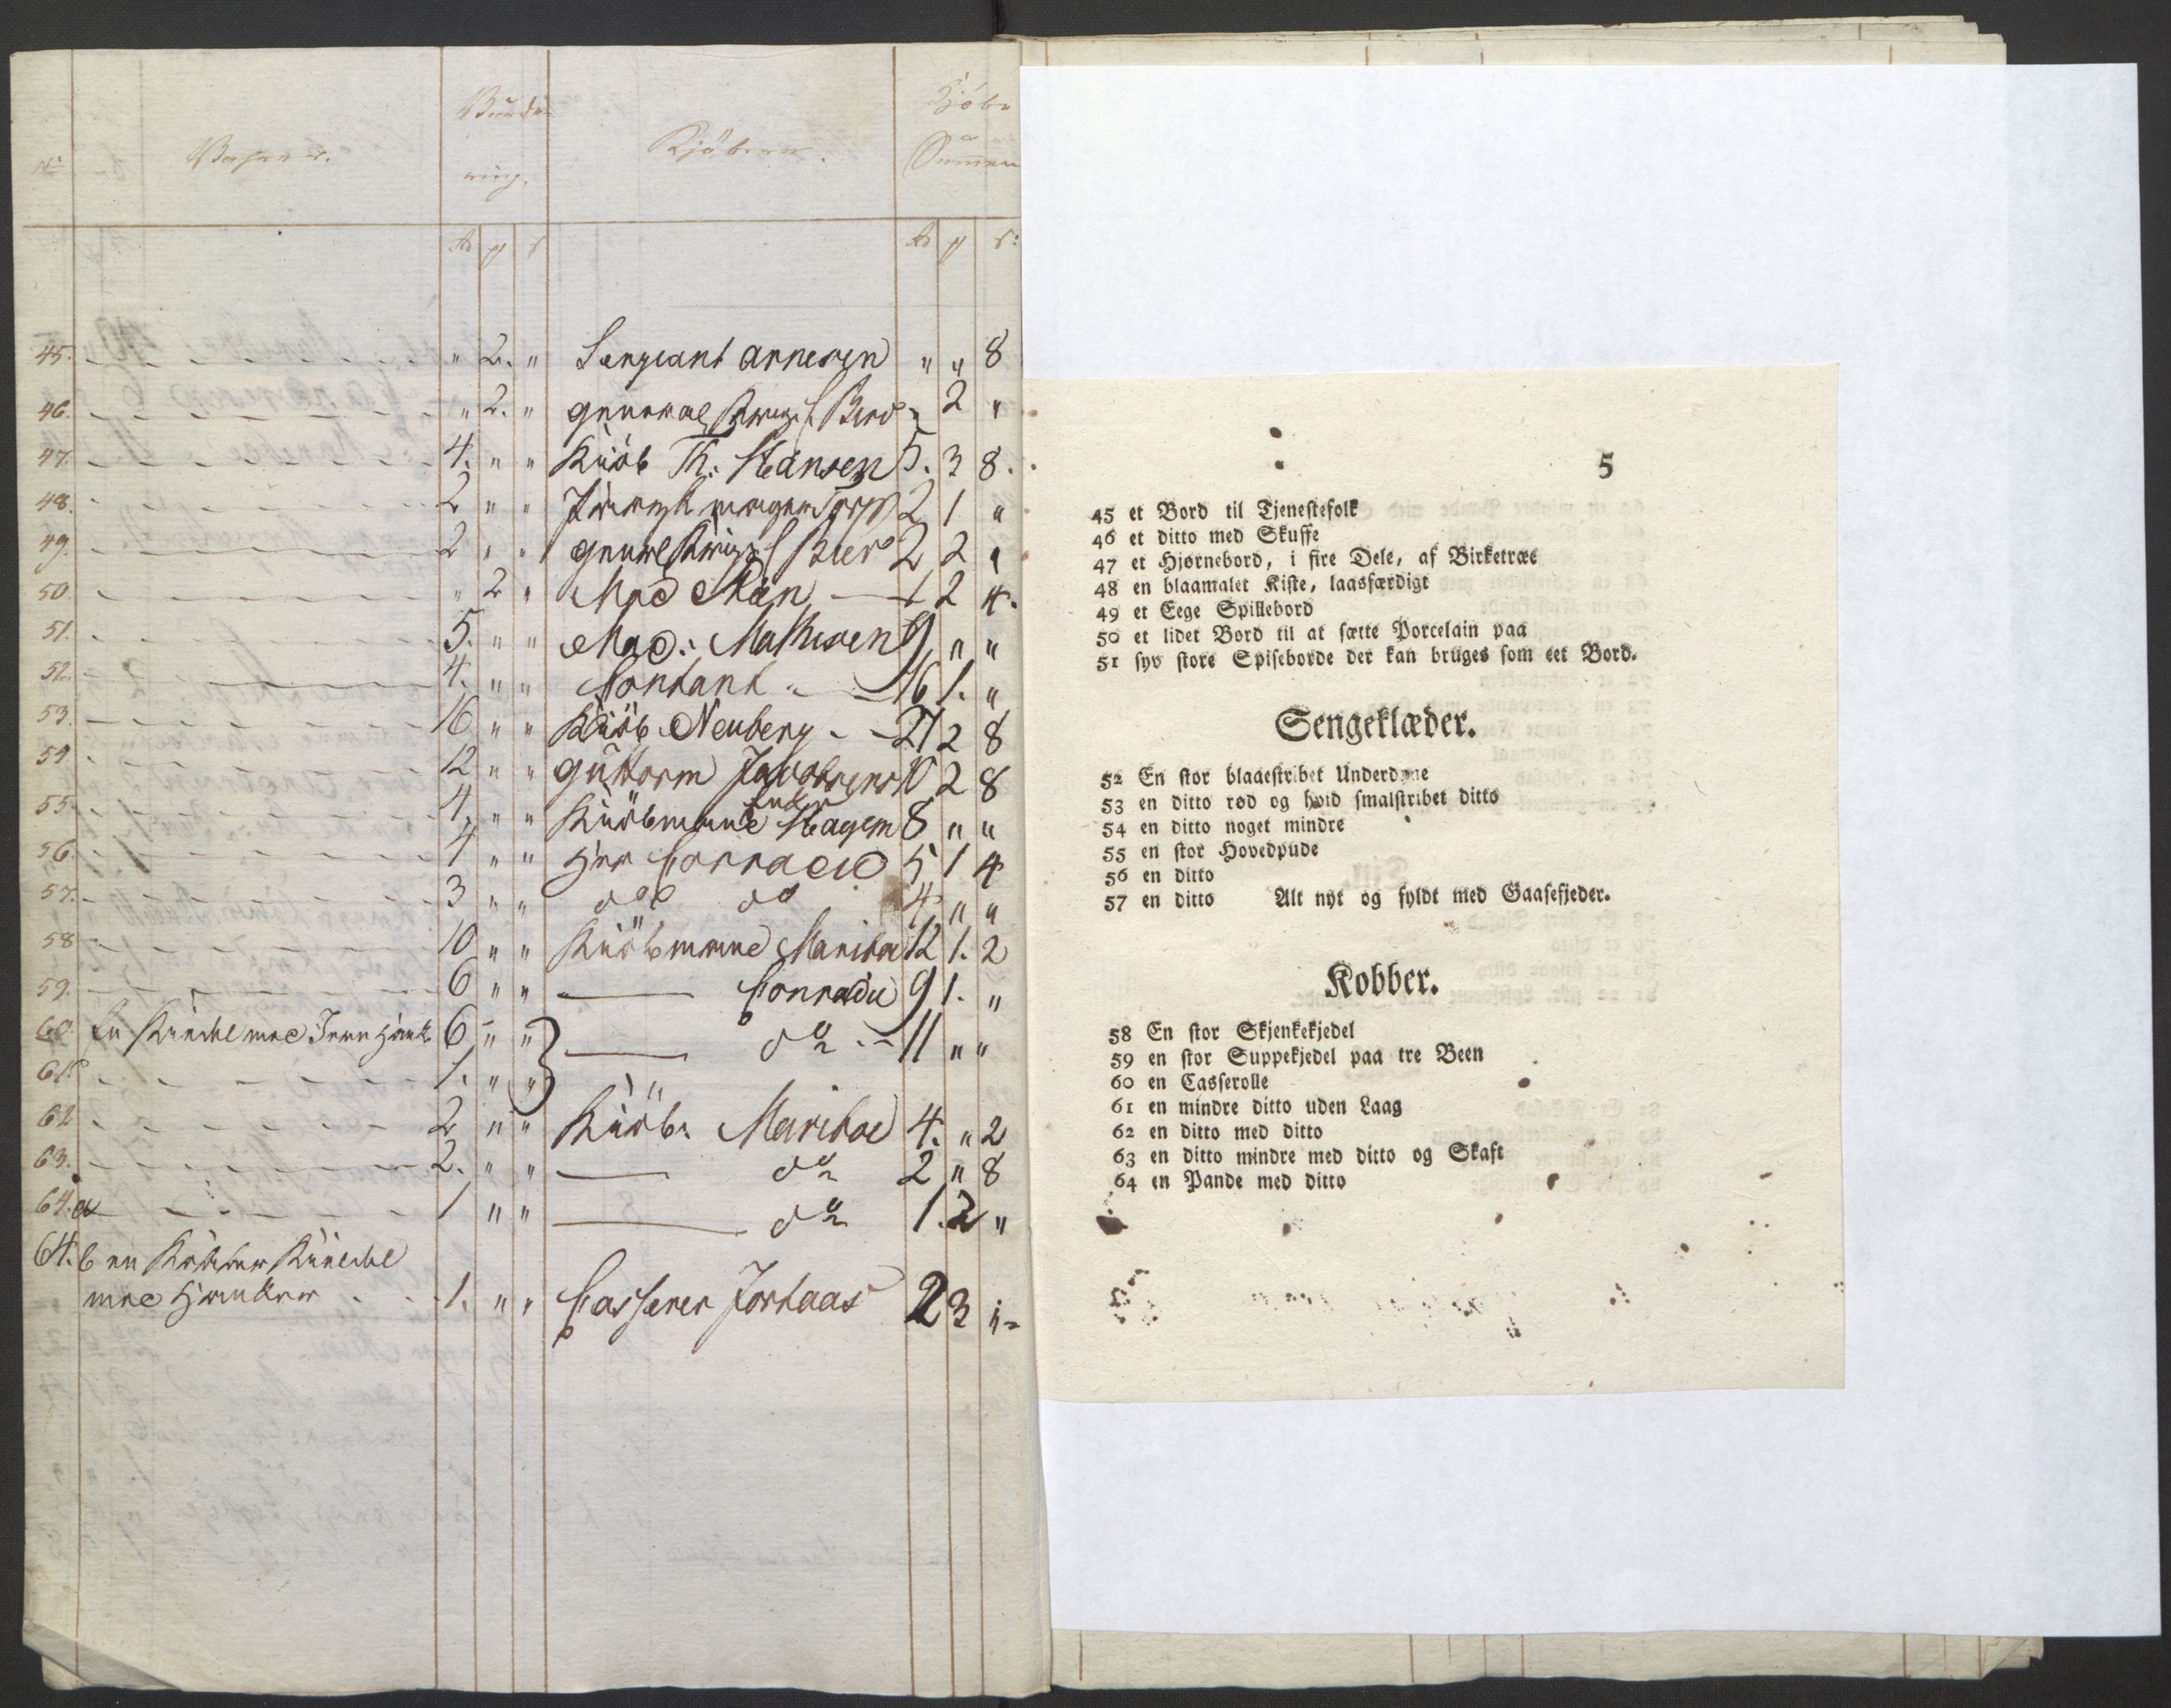 No
Kjöbere.
Summen
45. " 2. " Sergeant Arnesen " " 8
46. " 2. " 2 "
47. 4. " " Kiöb Th: Hansen 5. 3 8.
48. 2 " " 2 1 "
49. 2 " " 2 2 "
50. " 2 " Mad 1 2 4.
51. 5. " " Mad: Mathisen 9 " "
52. 4. " " Contant 16 1. "
53. 16 " " Kiöb. Neuberg 21 2 8
54 12 " " Guttorm Jacobsen 10 2 8
55 4. " " Kiöbmand Hagen 8 " "
56. 4 " " Herr Conradi 5 1 4
57. 3 " " do do 4 " "
58 10 " " Kiöbmand Mariboe 12 1. 2
59. 6 " " Conradi 9 1. "
60. En med 6 " " do 11 " "
61. 1. " "
62 2 " " Kiöb. Mariboe 4. " 2
63. 2. " " do 2 " 8
64. a 1 " " do 1. 2 "
64. b en Kobber
med 1. " " Casserer 2 3
5
45 et Bord til Tjenestefolk
46 et ditto med Skuffe
47 et Hjørnebord, i fire Dele, af Birketræe
48 en blaamalet Kiste, laasfærdigt
49 et Eege Spillebord
50 et lidet Bord til at sætte Porcelain paa
51 syv store Spiseborde der kan bruges som eet Bord.
Sengeklæder.
52 En stor blaaestribet Underdyne
53 en ditto rød og hvid smalstribet ditto
54 en ditto noget mindre
55 en stor Hovedpude
56 en ditto
57 en ditto Alt nyt og fyldt med Gaasefjeder.
Kobber.
58 En stor Skjenkekjedel
59 en stor Suppekjedel paa tre Been
60 en Casserolle
61 en mindre ditto uden Laag
62 en ditto med ditto
63 en ditto mindre med ditto og Skaft
64 en Pande med ditto